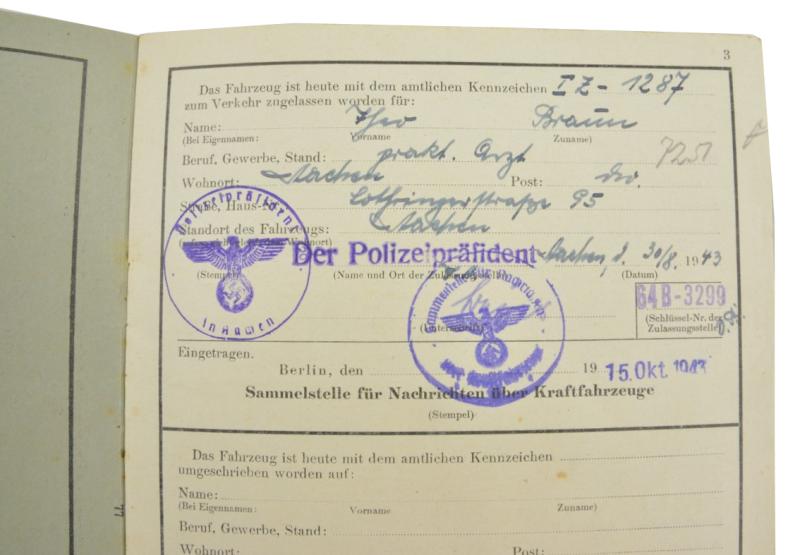 3
Das Fahrzeug ist heute mit dem amtlichen Kennzeichen IZ-1287
zum Verkehr zugelassen worden für:
Name: Theo Braun
(Bei Eigennamen: Vorname Zuname)
Beruf, Gewerbe, Stand: prakt. Arzt
Wohnort: Aachen Post: do.
Straße, Haus- Lothringerstraße 95
Standort des Fahrzeugs: Aachen
Der Polizeipräsident Aachen, d. 30/8. 1943
(Stempel) (Name und Ort der Zulassungsstelle) (Datum)
Der Polizeipräsident
in Aachen
64B-3299
(Unterschrift) (Schlüssel-Nr. der
Zulassungsstelle)
Sammelstelle für Nachrichten
über Kraftfahrzeuge
Eingetragen.
Berlin, den 19 15. Okt. 1943
Sammelstelle für Nachrichten über Kraftfahrzeuge
(Stempel)
Das Fahrzeug ist heute mit dem amtlichen Kennzeichen
umgeschrieben worden auf:
Name:
(Bei Eigennamen: Vorname Zuname)
Beruf, Gewerbe, Stand:
Wohnort: Post: